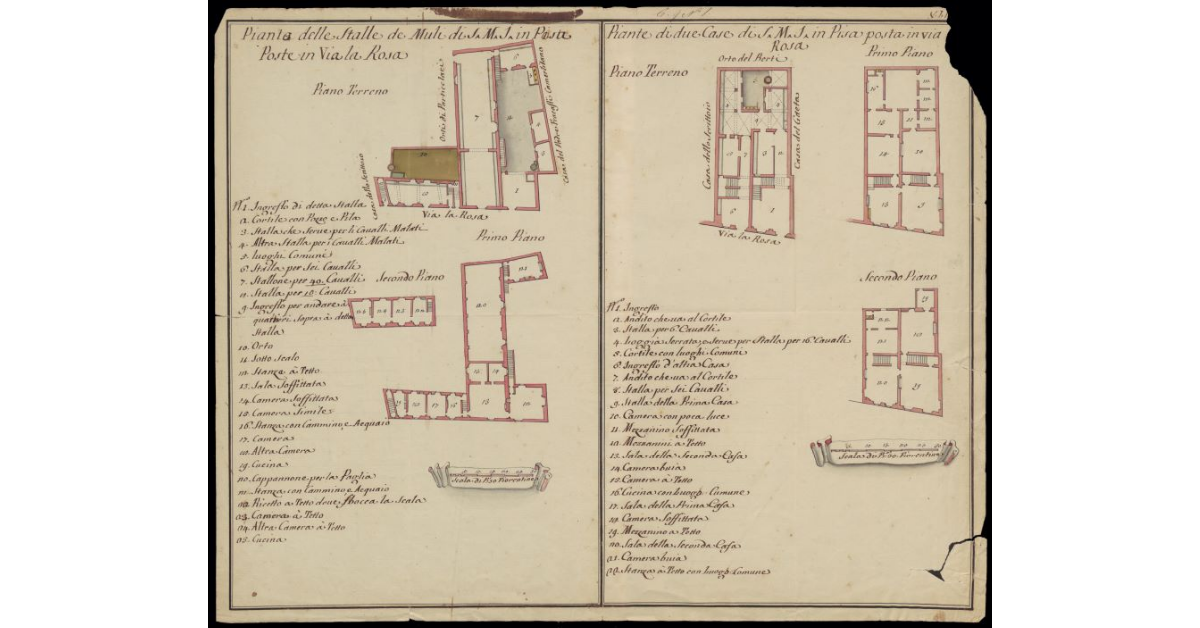 Pianta delle Stalle de Muli di S.M.I. in Pisa
Poste in Via la Rosa
Piano Terreno
Orti di Particolari
Casa dello Scrittoio
Via la Rosa
Nº1. Ingresso di detta Stalla
2. Cortile con Pozzo e Pila
3. Stalla che Serve per li Cavalli Malati
4. Altra Stalla per i Cavalli Malati
5. Luoghi Comuni
6. Stalla per Sei Cavalli
7. Stallone per 40. Cavalli
Stalla per 10. Cavalli
9. Ingresso per andare à
quartieri Sopra à detta
Stalla
10. Orto
11. Sotto Scala
12. Stanza à Tetto
13. Sala Soffittata
14. Camera Soffittata
15. Camera Simile
16. Stanza con Cammino, e Acquaio
17. Camera
18. Altra Camera
19. Cucina
20. Capannone per la Paglia
21. Stanza con Cammino e Acquaio
22. Ricetto a Tetto dove sbocca la Scala
23. Camera à Tetto
24. Altra Camera à Tetto
25. Cucina
Primo Piano
Secondo Piano
Scala di Bra Fiorentine
Piante di due Case di S.M.I. in Pisa posta in via
Rosa
Piano Terreno
Primo Piano
Casa dello Scrittoio
Casa del Gaeta
Via la Rosa
Secondo Piano
Nº1. Ingresso
2. Andito che va al Cortile
3. Stalla per 6. Cavalli
4. Loggia Serrata, e Serve per Stalla per 16. Cavalli
5. Cortile con luoghi Comuni
6. Ingresso d'altra Casa
7. Andito che va al Cortile
8. Stalla per Sei Cavalli
9. Stalla della Prima Casa
10. Camera con poca luce
11. Mezzanino Soffittata
12. Mezzanini à Tetto
13. Sala della Seconda Casa
14. Camera buia
15. Camera à Tetto
16. Cucina con luogh. Comune
17. Sala della Prima Casa
Camera Soffittata
19. Mezzanino à Tetto
20. Sala della Seconda Casa
21. Camera buia
Stanza à Tetto con luogh. Comune
Scala di Bra Fiorentine